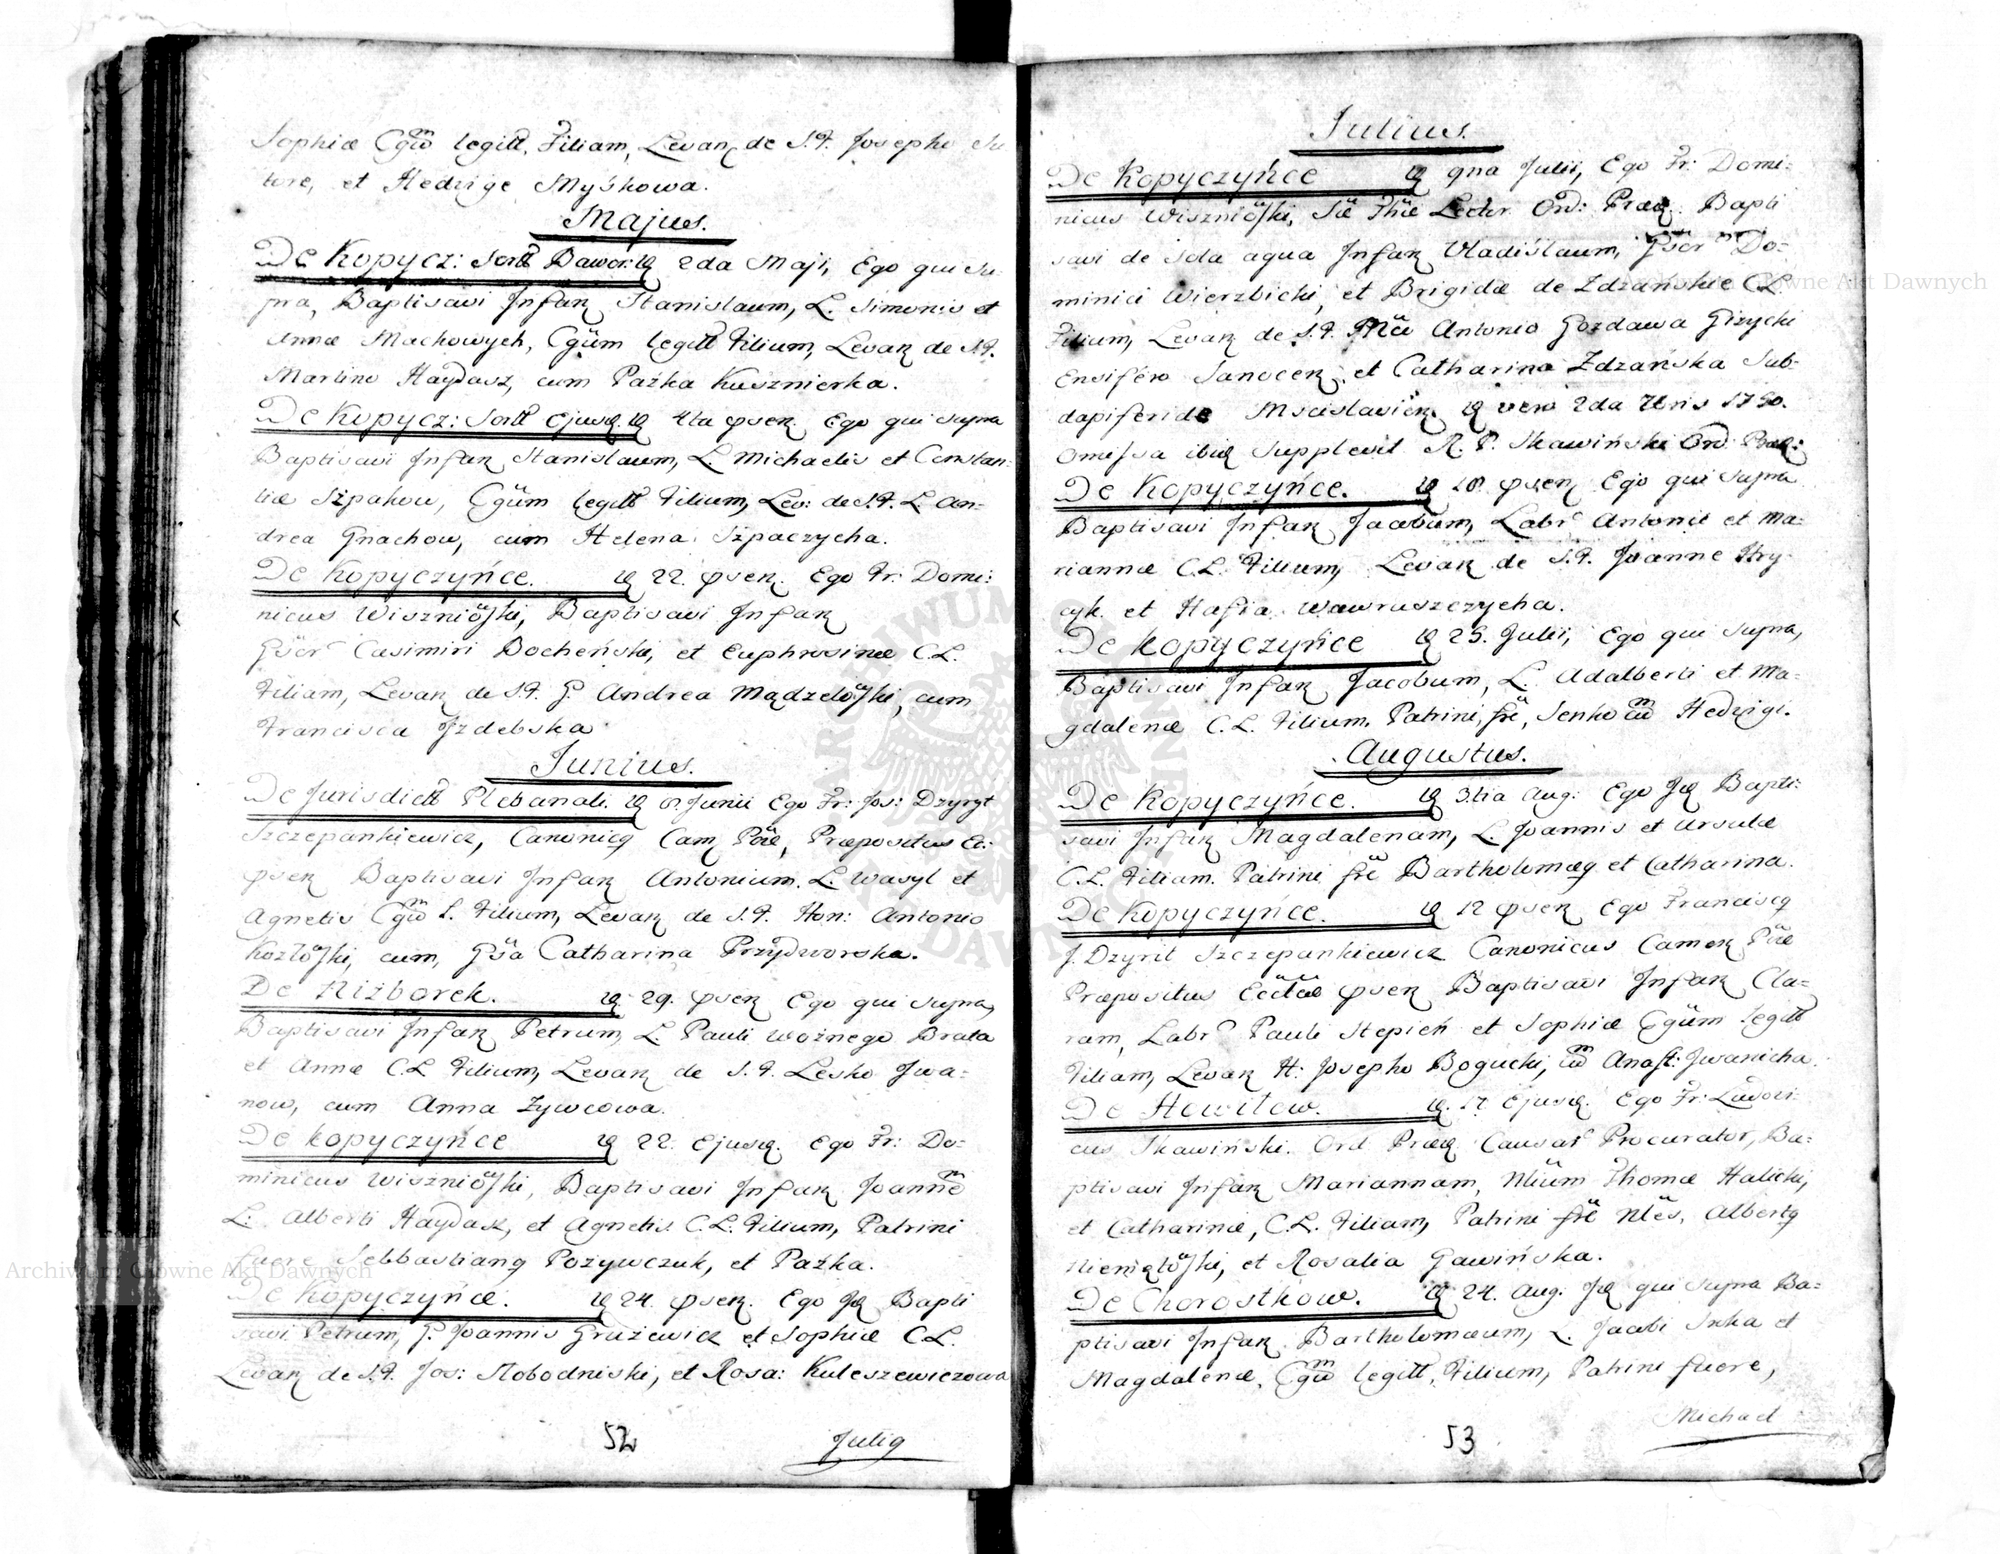 Sophiæ Cgm̃ legitt. Filiam, Levanʒ de S.F. Josepho Su
tore, et Hedvige Myśkowa.
Majus.
De Kopycz: Sort Dawor: 2da Maji, Ego qui Su-
pra, Baptisavi Infan Stanislaum, L. Simonis et
Annæ Machowych, Cgũm legitt Filium, Levan de S.F.
Martino Haydasz, cum Paźka Kusznierka.
De Kopycz: Sort Ejusq. 4ta Ego qui supra
Baptisavi Infan Stanislaum, L. Michaelis et Constan:
tiæ Szpakow, Cgũm legitt Filium, Lev: de S.F. L. An=
drea Gnachow, cum Helena Szpaczycha.
De Kopyczyńce. 22. Ego Fr: Domi:
nicus Wiszniőski, Baptisavi Infan
Gsor Casimiri Bocheński, et Euphrosinæ C.L.
Filiam, Levan de S.F. G. Andrea Mądzelőski, cum
Francisca Izdebska
Junius.
De Jurisdictt Plebanali. Junii Ego Fr: Jos: Dzyryt
Szczepankiewicz, Canonicq Cam Põe, Præpositus Ec:
Baptisavi Infan Antonium. L. Wasyl et
Agnetis Cgm̃ l. Filium, Levan de S.F. Hon: Antonio
Kozłőski, cum, Gsa Catharina Przydworska.
De Niżborek. 29. Ego qui supra,
Baptisavi Infan Petrum, L. Pauli Woźnego Brata
et Annæ C.L Filium, Levan de S.F. Lesko Iwa=
now, cum Anna Zywcowa.
De kopyczyńce 22. Ejusq. Ego Fr: Do=
minicus Wiszniőski, Baptisavi Infan Joannem
L. Alberti Haydasz, et Agnetis C.L. Filium, Patrini
fuere Sebbastianq Pożywczuk, et Paźka.
De Kopyczyńce. 24. Ego Bapti
savi Petrum, G. Joannis Grużewicz et Sophiæ C.L.
Levan de S.F. Jos: Słobodniski, et Rosa: Kuleszewiczowa
52 Juliq
Julius.
De Kopyczyńce 9na Julii, Ego Fr: Domi=
nicus Wiszniőski, Lector Ord: Præd. Bapti
savi de sola aqua Infan Vladislaum, Gsor Do=
minici Wierzbicki, et Brigidæ de Zdzańskie C.L.
Filium, Levan de S.F. Antonio Gozdawa Giżycki
Ensifero Sanocen, et Catharina Zdzańska Sub=
dapiferide Mscislavien vero 2da 1750.
Omissa Supplevit R. P. Skawiński Ord: Præd:
De Kopyczyńce. Ego qui supra
Baptisavi Infan Jacobum, Labr Antonii et Ma=
riannæ C.L. Filium, Levan de S.F. Joanne Hry
cyk. et Hasia Wawruszczycha.
De kopyczyńce 25. Julii, Ego qui supra,
Baptisavi Infan Jacobum, L. Adalberti et Ma=
gdalenæ C.L. Filium. Patrini, Senko cũ Hedvigi.
Augustus.
De Kopyczyńce. 3.tia Aug: Ego Bapti:
savi Infan Magdalenam, L. Joannis et Ursulæ
C.L. Filiam. Patrini Bartholomæq et Catharina.
De Kopyczyńce. 12 Ego Franciscq
J. Dzyrit Szczepankiewicz Canonicus Camen
Præpositus Ecctæ Baptisavi Infan Cla=
ram, Labr Pauli Stepień et Sophiæ Cgũm legitt
Filiam, Levan H: Josepho Bogucki, cũ Anast: Iwanicha.
De Howiłow. 17. Ejusq. Ego Fr: Ludovi:
cus Skawiński. Ord Præd Causar Procurator, Ba=
ptisavi Infan Mariannam, Thomæ Halicki,
et Catharinæ, C.L. Filiam, Patrini Albertq
Niemiałőski, et Rosalia Gawińska.
De Chorostkow. 24. Aug: qui supra Ba=
ptisavi Infan Bartholomæum, L. Jacobi Snka et
Magdalenæ, Cgm̃ legitt, Filium, Patrini fuere,
53 Michael
Archiwum Główne Akt Dawnych